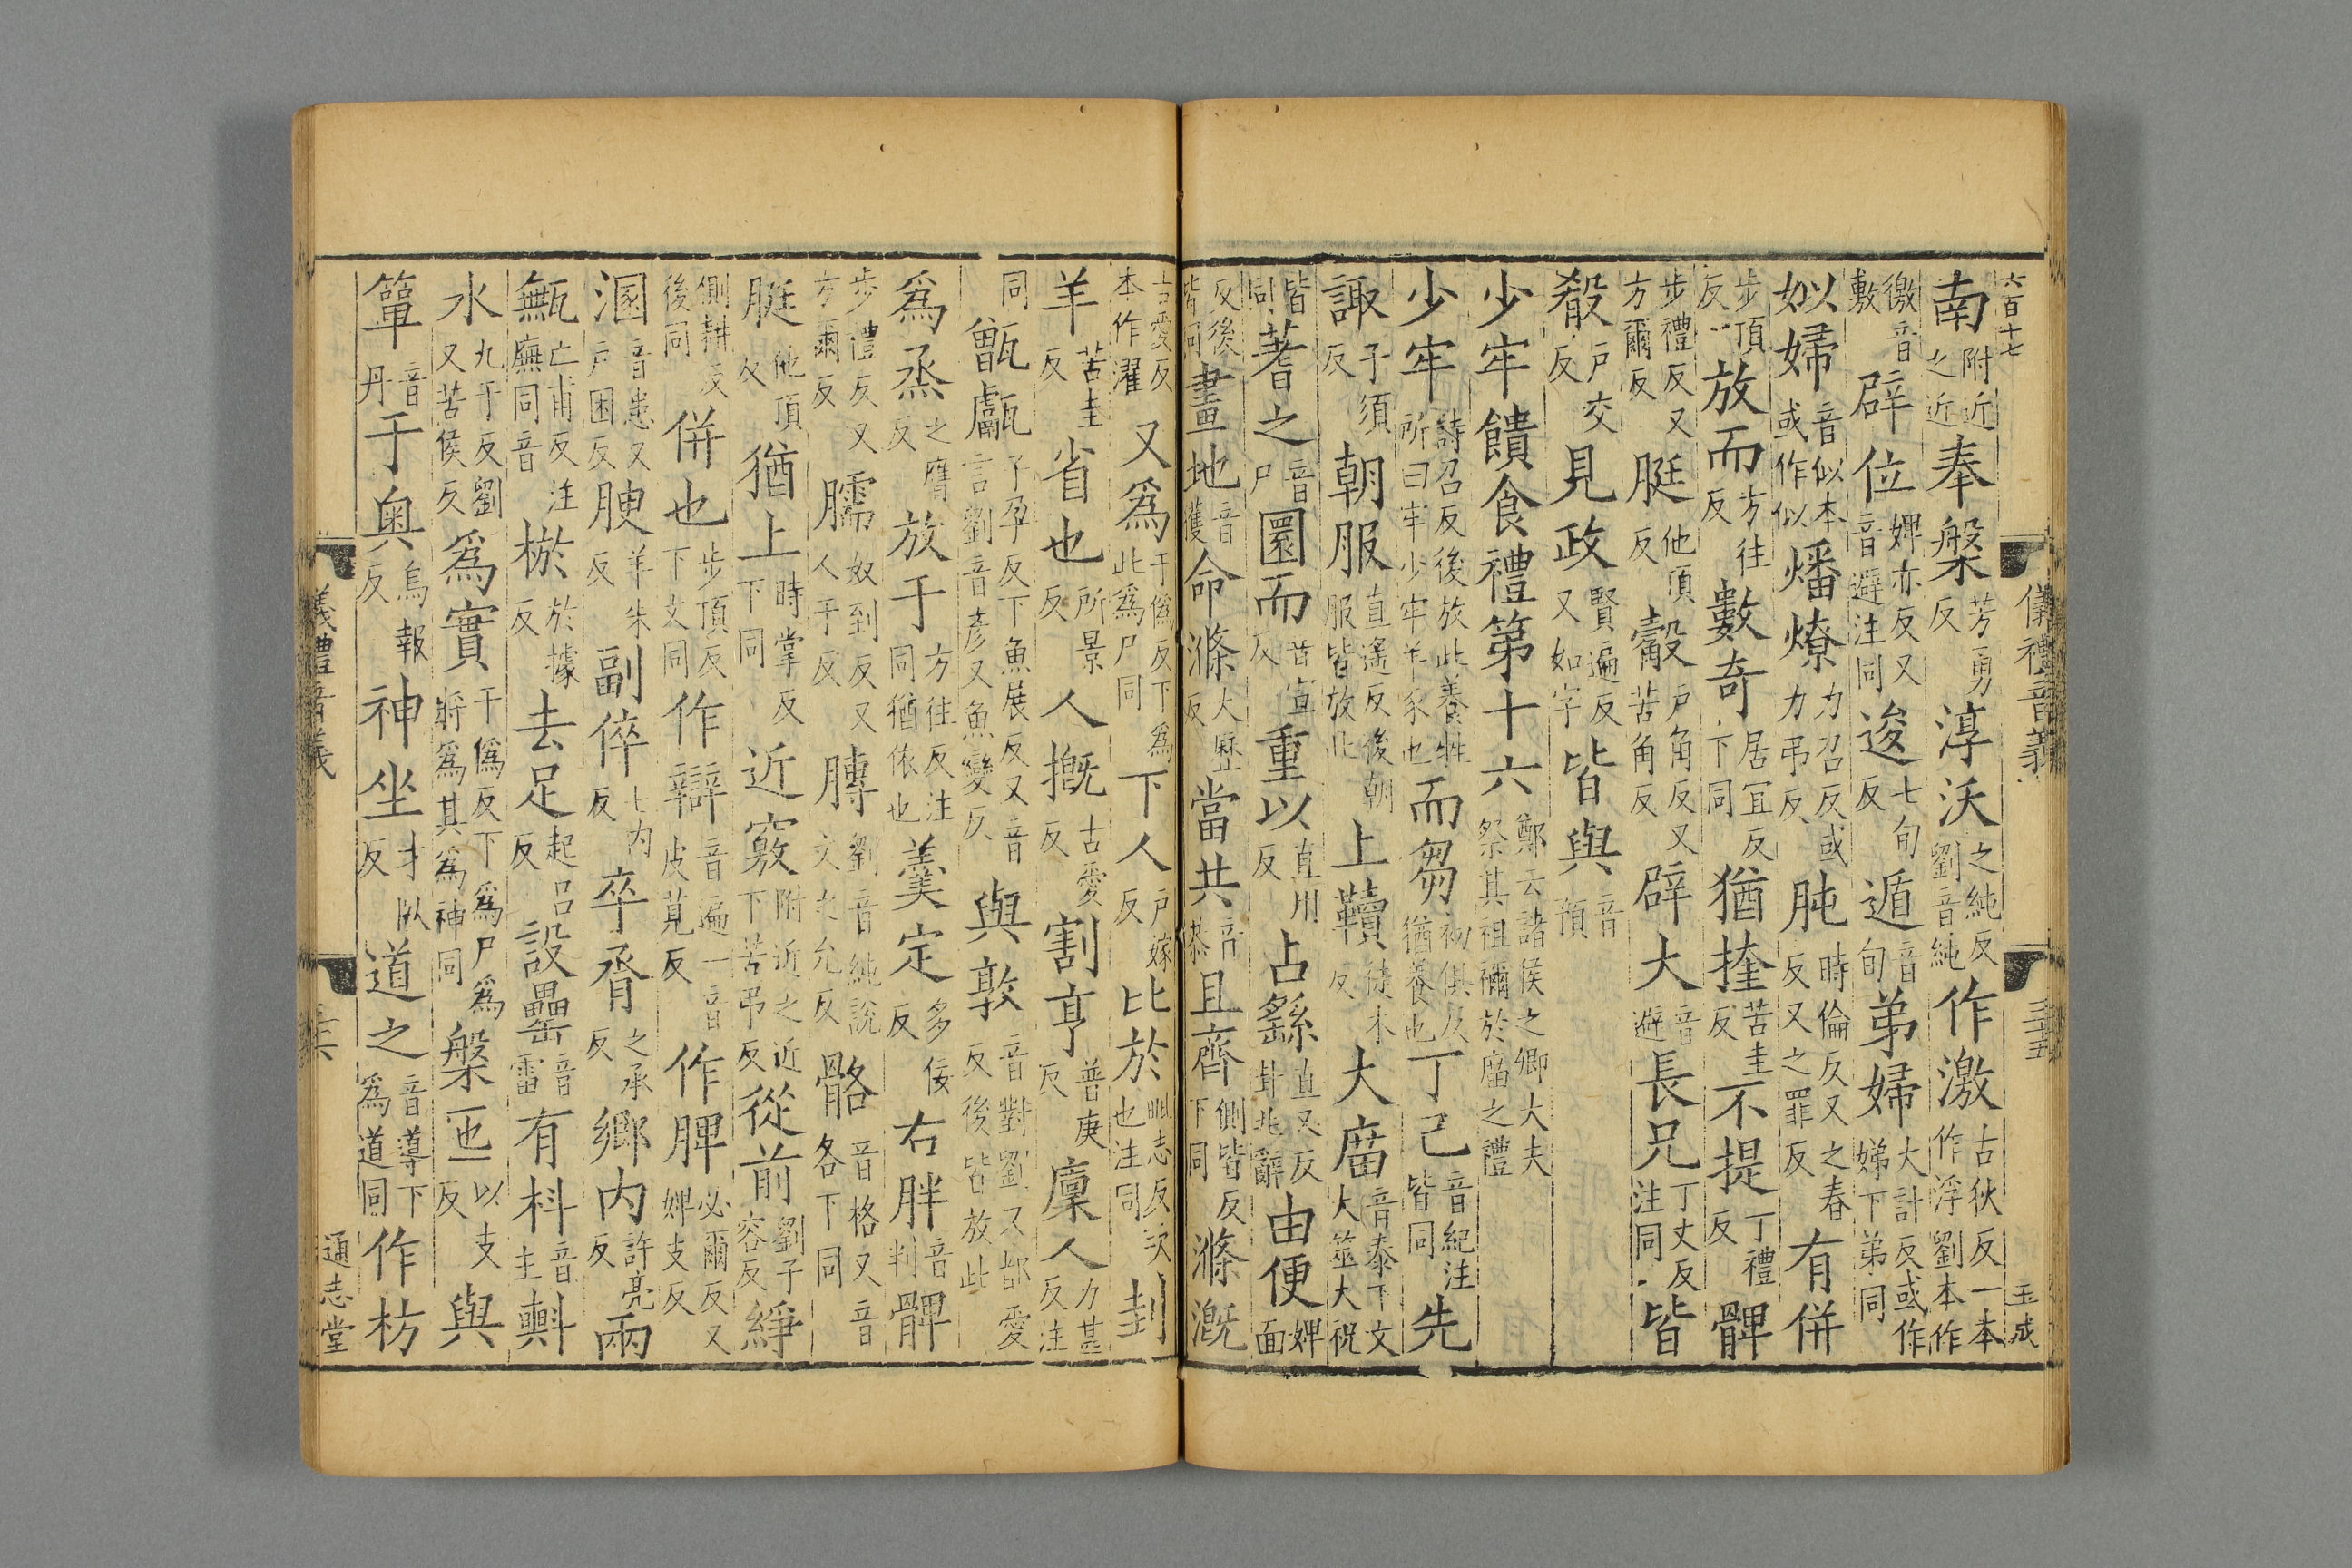 六百十七
儀禮音義
三十五
玉成
南附近之近奉槃芳勇反淳沃之純反劉音純作激古狄反一本作浮劉本作
徼音敷辟位婢亦反又音避注同逡七旬反遁音旬弟婦大計反或作娣下弟同
姒婦音似本或作似燔燎力召反或力弔反肫時倫反又之春反又之罪反有併
步頂反放而方往反數奇居宜反下同猶挂苦圭反不提丁禮反髀
步禮反又方爾反脡他頂反觳戶角反又苦角反辟大音避長兄丁丈反注同皆
殽戶交反見政賢遍反又如字皆與音預
少牢饋食禮第十六鄭云諸侯之卿大夫祭其祖禰於廟之禮
少牢詩召反後放此養牲所曰牢少牢羊豕也而芻初俱反猶養也丁己音紀注皆同先
諏子須反朝服直遙反後朝服皆放此上韇徒木反大廟音泰下文大筮大祝
皆同蓍之音尸圜而音宣反重以直用反占繇直又反卦兆辭由便婢面
反後皆同畫地音獲命滌大歷反當共音恭且齊側皆反下同滌溉
古愛反本作濯又為于偽反下為此為尸同下人戶嫁反比於毗志反次也注同刲
羊苦圭反省也所景反人摡古愛反割亨普庚反廩人力甚反注
同甑甗子孕反下魚展反又音言劉音彥又魚變反與敦音對劉又都愛反後皆放此
為烝之膺反放于方往反注同猶依也羹定多佞反右胖音判髀
步禮反又方爾反臑奴到反又人于反膊劉音純說文之允反骼音格又音各下同
脡他頂反猶上時掌反下同近竅附近之近下苦弔反從前劉子容反綪
側耕反後同併也步頂反下文同作辯音遍一音皮莧反作脾必爾反又婢支反
溷音患又戶困反腴羊朱反副倅七內反卒脀之承反鄉內許亮反兩
甒亡甫反注廡同音棜於據反去足起呂反設罍音雷有枓音主㪺
水九于反劉又苦侯反為實于偽反下為尸為將為其為神同槃匜以支反與
簞音丹于奧烏報反神坐才臥反道之音導下為道同作枋
儀禮音義
三十六
通志堂